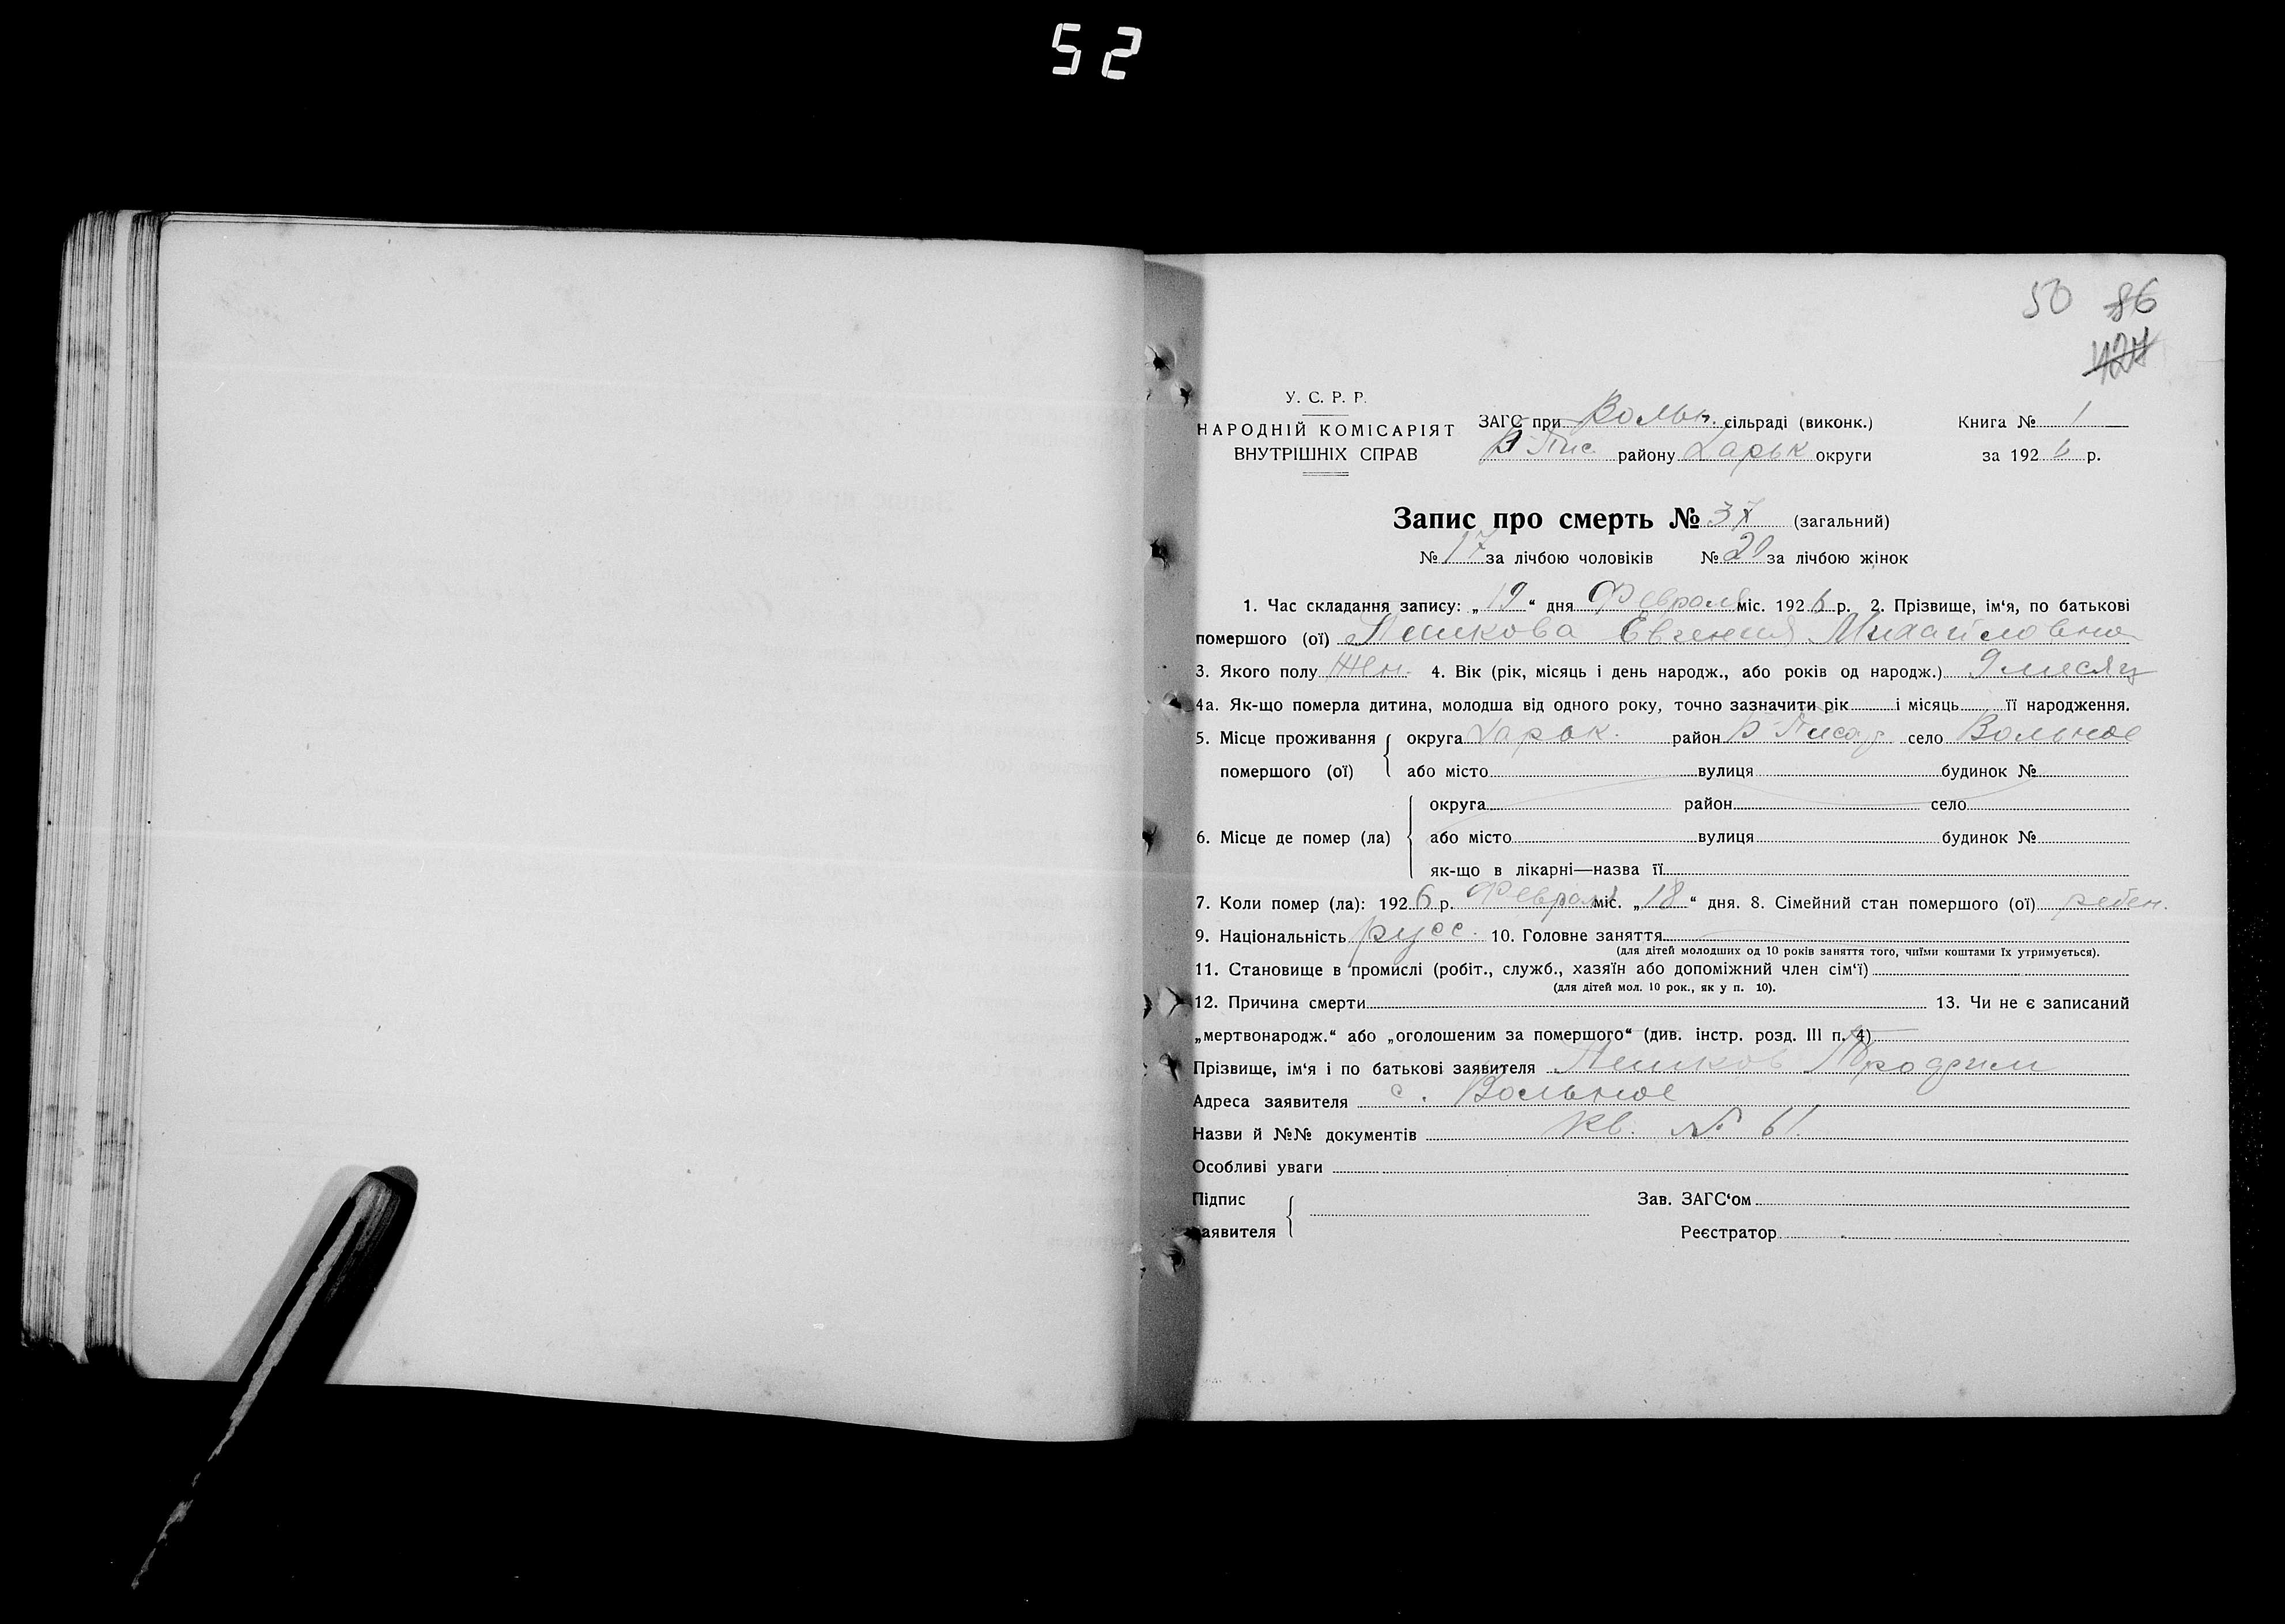 52
50 86
У. С. Р. Р.
НАРОДНІЙ КОМІСАРІЯТ
ВНУТРІШНІХ СПРАВ
ЗАГС при Вольн. сільраді (виконк.)
Б Пис. району Харьк округи
Книга № 1
за 1926 р.
Запис про смерть № 37 (загальний)
№ 17 за лічбою чоловіків № 20 за лічбою жінок
1. Час складання запису: „19“ дня Февраля міс. 1926 р. 2. Прізвище, ім‘я, по батькові
помершого (ої) Пешкова Евгения Михайловна
3. Якого полу Жен. 4. Вік (рік, місяць і день народж., або років од народж.) 9 месяц
4а. Як-що померла дитина, молодша від одного року, точно зазначити рік і місяць її народження.
5. Місце проживання помершого (ої) округа Харьк. район Б Писар село Вольное
або місто вулиця будинок №
6. Місце де помер (ла) округа район село
або місто вулиця будинок №
як-що в лікарні—назва її
7. Коли помер (ла): 1926 р. Февраля міс. „18“ дня. 8. Сімейний стан помершого (ої) ребен.
9. Національність русс. 10. Головне заняття
(для дітей молодших од 10 років заняття того, чиїми коштами їх утримується).
11. Становище в промислі (робіт., служб., хазяїн або допоміжний член сім‘ї)
(для дітей мол. 10 рок., як у п. 10).
12. Причина смерти 13. Чи не є записаний
„мертвонародж.“ або „оголошеним за помершого“ (див. інстр. розд. III п. 4)
Прізвище, ім‘я і по батькові заявителя Пешков
Адреса заявителя с. Вольное
Назви й №№ документів кв. № 61
Особливі уваги
Підпис
заявителя
Зав. ЗАГС‘ом
Реєстратор